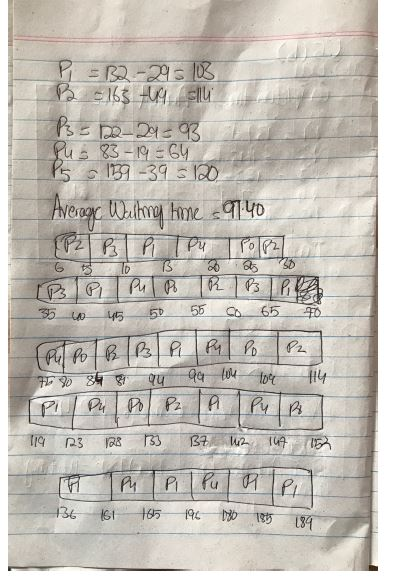 P1 = 132 - 29 = 103
P2 = 163 - 49 = 114
P3 = 122 - 29 = 93
P4 = 83 - 19 = 64
P5 = 159 - 39 = 120
Average Waiting time = 97.40
P2 P3 P1 P4 P0 P2
6 10 20 25 30
P3 P1 P4 P2 P3 P1
35 40 45 50 55 60 65 70
P4 P0 P2 P3 P1 P4 P0 P2
80 94 99 104 109 114
P1 P4 P0 P2 P1 P4 P3
119 123 128 133 137 142 147 152
P1 P4 P1 P4 P1 P1
136 161 165 196 180 185 189